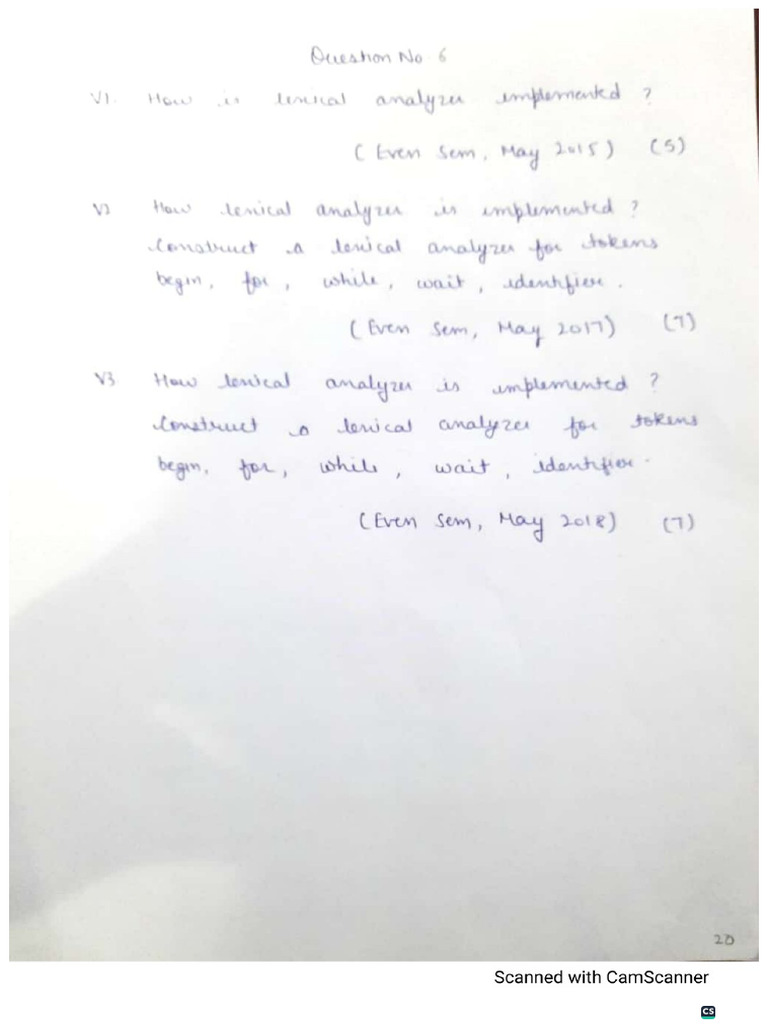 Question No 6
V1. How is lexical analyzer implemented ?
( Even Sem, May 2015) (5)
V2 How lexical analyzer is implemented ?
Construct a lexical analyzer for tokens
begin, for, while, wait, identifier.
( Even Sem, May 2017) (7)
V3 How lexical analyzer is implemented ?
Construct a lexical analyzer for tokens
begin, for, while, wait, identifier.
(Even Sem, May 2018) (7)
20
Scanned with CamScanner
CS